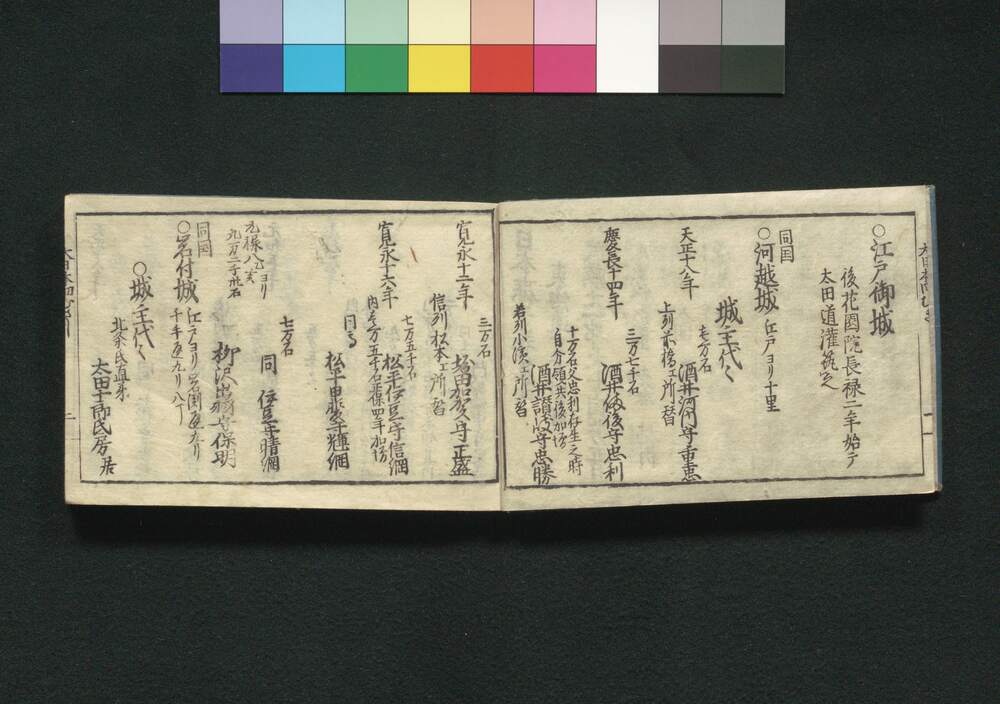 ○江戸御城
後花園院長禄二年始テ
太田道灌築之
同国
○河越城 江戸ヨリ十里
城主代々
七万石
天正十八年 酒井河内守重忠
上列前橋エ所替
三万七千石
慶長十四年 酒井備後守忠利
十万石父忠利存生之時
自分領共後加増
酒井讃岐守忠勝
若列小濱エ所替
三万石
寛永十二年 堀田加賀守正盛
信列松本エ所替
七万五千石
寛永十六年 松平伊豆守信綱
内壱万五千石正保四年加増
同高
松平甲斐守輝綱
七万石
同 伊豆守晴綱
元禄八乙亥ヨリ
九万二千卅石
柳沢出羽守保明
同国
○岩付城 江戸ヨリ岩渕通九リ
千手通九リ八丁
○城主代々
北条氏直弟
太田十郎氏房居